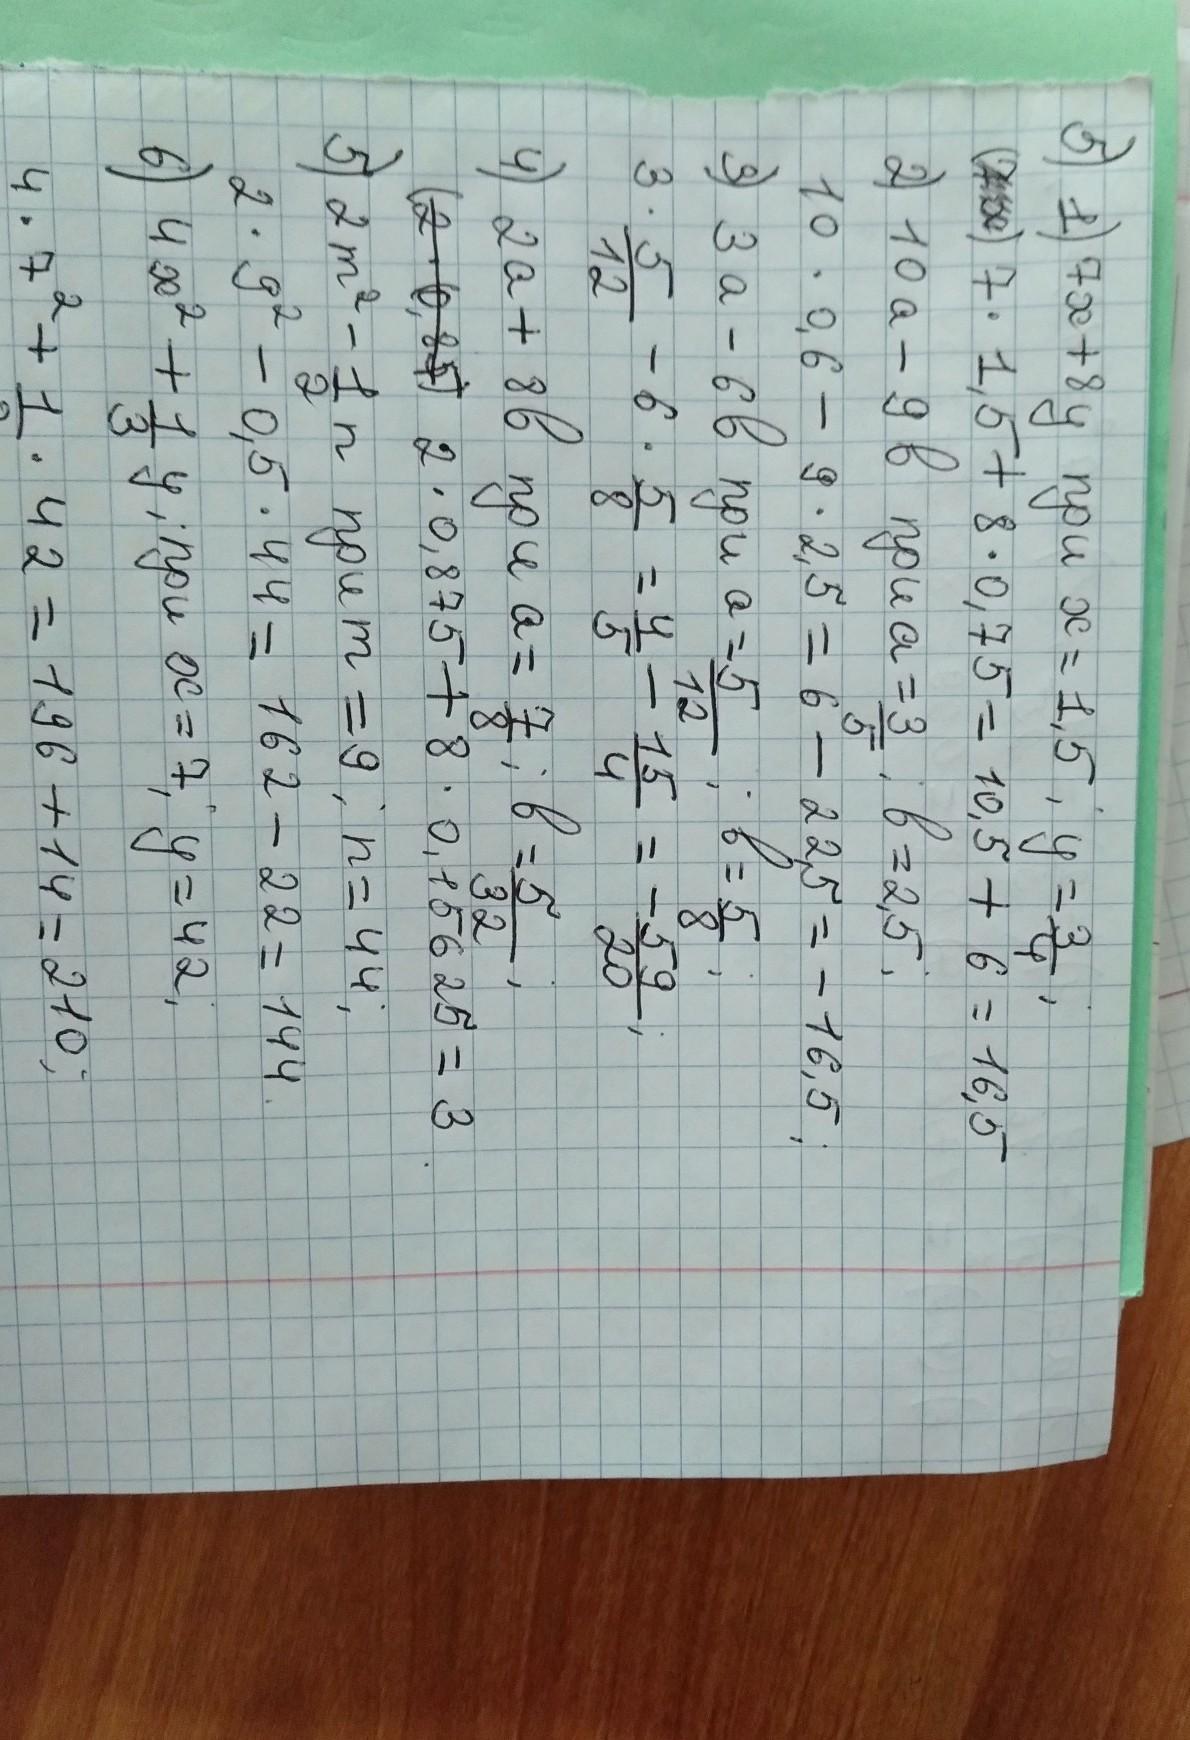 5) 1) 7x+8y при x=1,5; y=3/4;
7·1,5+8·0,75=10,5+6=16,5
2) 10a-9b при a=3/5; b=2,5;
10·0,6-9·2,5=6-22,5=-16,5;
3) 3a-6b при a=5/12; b=5/8;
3·5/12-6·5/8=4/5-15/4=-59/20;
4) 2a+8b при a=7/8; b=5/32;
(2·0,87) 2·0,875+8·0,15625=3
5) 2m²-1/2n при m=9; n=44;
2·9²-0,5·44=162-22=144.
6) 4x²+1/3y; при x=7; y=42;
4·7²+1/3·42=196+14=210;